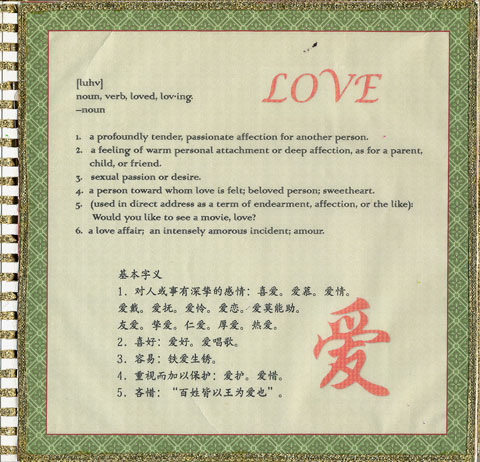 LOVE
[luhv]
noun, verb, loved, lov·ing.
–noun
1. a profoundly tender, passionate affection for another person.
2. a feeling of warm personal attachment or deep affection, as for a parent,
child, or friend.
3. sexual passion or desire.
4. a person toward whom love is felt; beloved person; sweetheart.
5. (used in direct address as a term of endearment, affection, or the like):
Would you like to see a movie, love?
6. a love affair; an intensely amorous incident; amour.
基本字义
1. 对人或事有深挚的感情：喜爱。爱慕。爱情。
爱戴。爱抚。爱怜。爱恋。爱莫能助。
友爱。挚爱。仁爱。厚爱。热爱。
2. 喜好：爱好。爱唱歌。
3. 容易：铁爱生锈。
4. 重视而加以保护：爱护。爱惜。
5. 吝惜：“百姓皆以王为爱也”。
爱